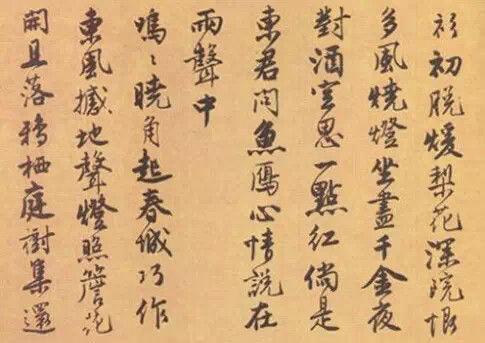 衫初脫暖梨花深院恨
多風燒燈坐盡千金夜
對酒空思一點紅倘是
東君問魚鴈心情說在
雨聲中
嗚〻曉角起春城巧作
東風撼地聲燈照簷花
開且落鴉栖庭樹集還